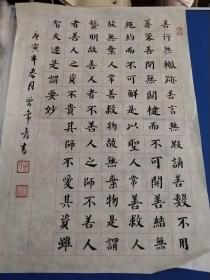 善行無轍跡善言無瑕謫善數不用
籌策善閉無關楗而不可開善結無
繩約而不可解是以聖人常善救人
故無棄人常善救物故無棄物是謂
襲明故善人者不善人之師不善人
者善人之資不貴其師不愛其資雖
智大迷是謂要妙
庚寅年春月書